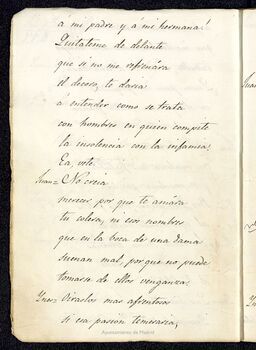 a mi padre y a mi hermana!
Quitateme de delante
que si no me refrenára
el decoro, te daria
á entender como se trata
con hombres en quien compite
la insolencia con la infamia.
Ea, vete.
Juan = No creia
merecer por que te amára
tu colera, ni esos nombres
que en la boca de una dama
suenan mal, por que no puede
tomarse de ellos venganza.
Ynes = Oiraslos mas afrentosa
si esa pasion temeraria,
Ayuntamiento de Madrid